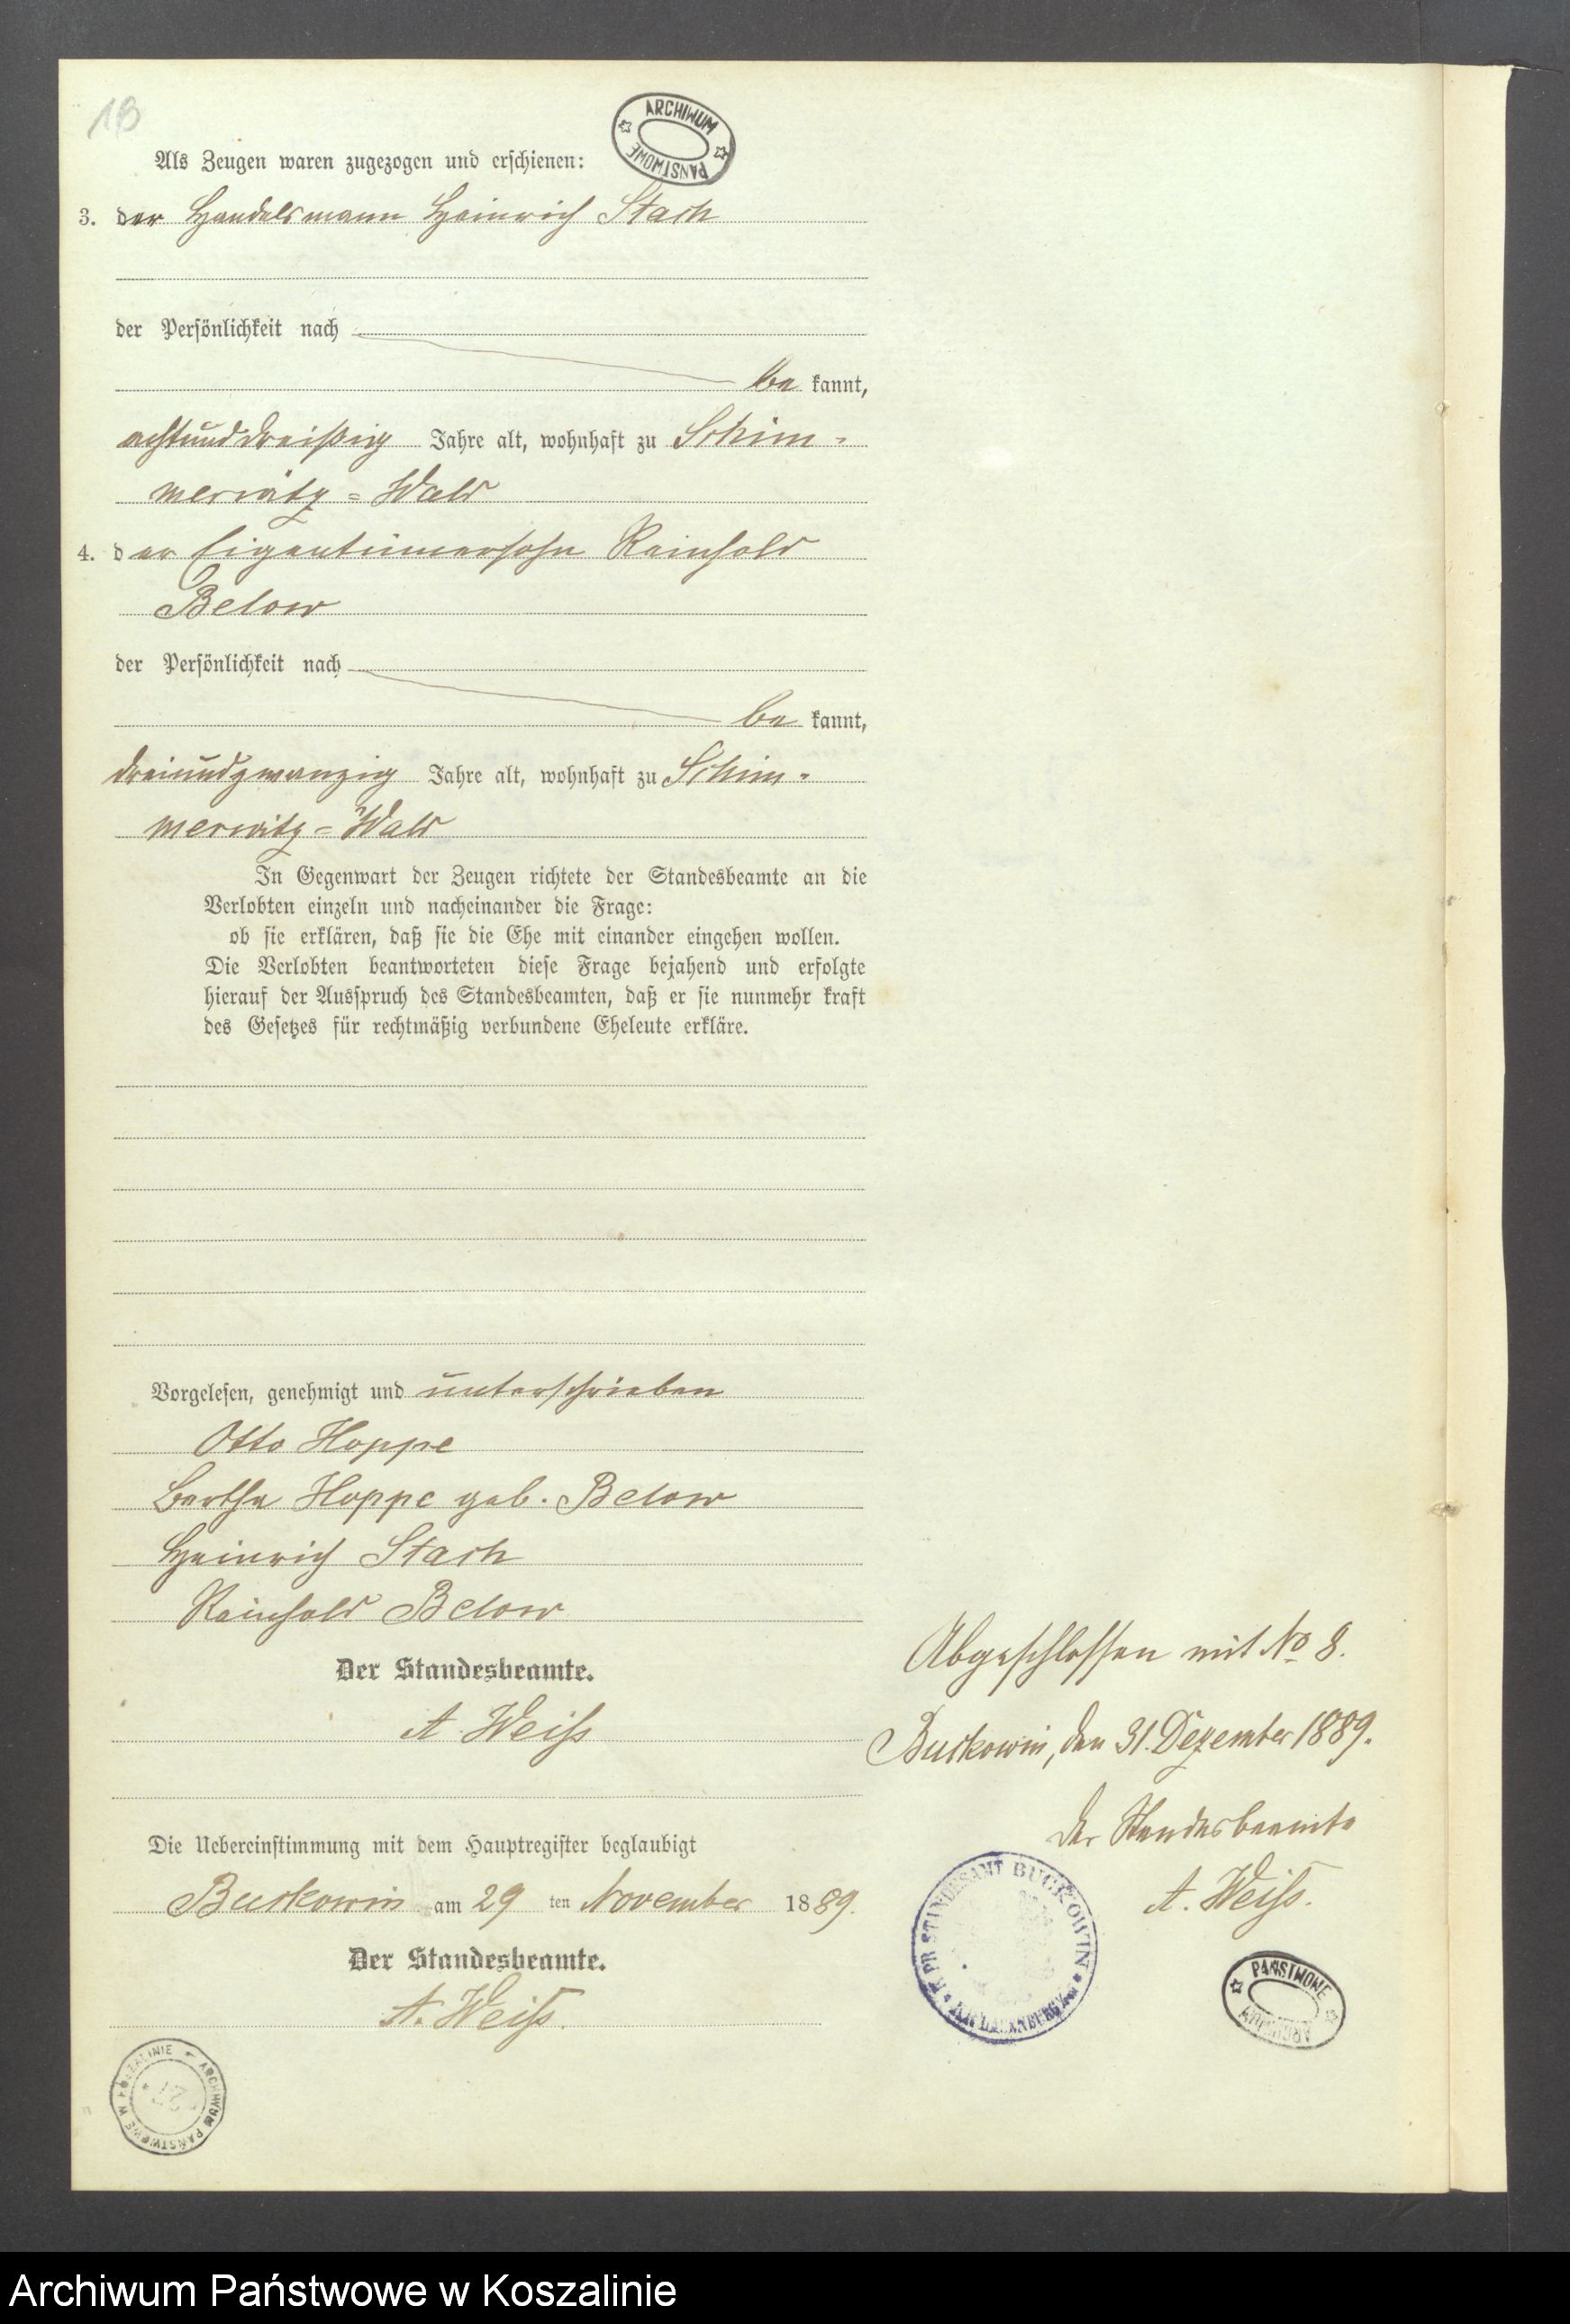 18
ARCHIWUM
PAŃSTWOWE
Als Zeugen waren zugezogen und erschienen:
3. der Handelsmann Heinrich Stach
der Persönlichkeit nach
be kannt,
achtunddreißig Jahre alt, wohnhaft zu Schim-
merwitz=Wald
4. der Eigentümersohn Reinhold
Below
der Persönlichkeit nach
be kannt,
dreiundzwanzig Jahre alt, wohnhaft zu Schim-
merwitz=Wald
In Gegenwart der Zeugen richtete der Standesbeamte an die
Verlobten einzeln und nacheinander die Frage:
ob sie erklären, daß sie die Ehe mit einander eingehen wollen.
Die Verlobten beantworteten diese Frage bejahend und erfolgte
hierauf der Ausspruch des Standesbeamten, daß er sie nunmehr kraft
des Gesetzes für rechtmäßig verbundene Eheleute erkläre.
Vorgelesen, genehmigt und unterschrieben
Otto Hoppe
Bertha Hoppe geb. Below
Heinrich Stach
Reinhold Below
Der Standesbeamte.
A. Weiß
Die Uebereinstimmung mit dem Hauptregister beglaubigt
Buckowin am 29 ten November 1889.
Der Standesbeamte.
A. Weiß.
Abgeschlossen mit No 8.
Buckowin, den 31. Dezember 1889.
Der Standesbeamte
A. Weiß.
K. PR. STANDESAMT BUCKOWIN
PAŃSTWOWE
ARCHIWUM
ARCHIWUM PAŃSTWOWE W KOSZALINIE
Archiwum Państwowe w Koszalinie